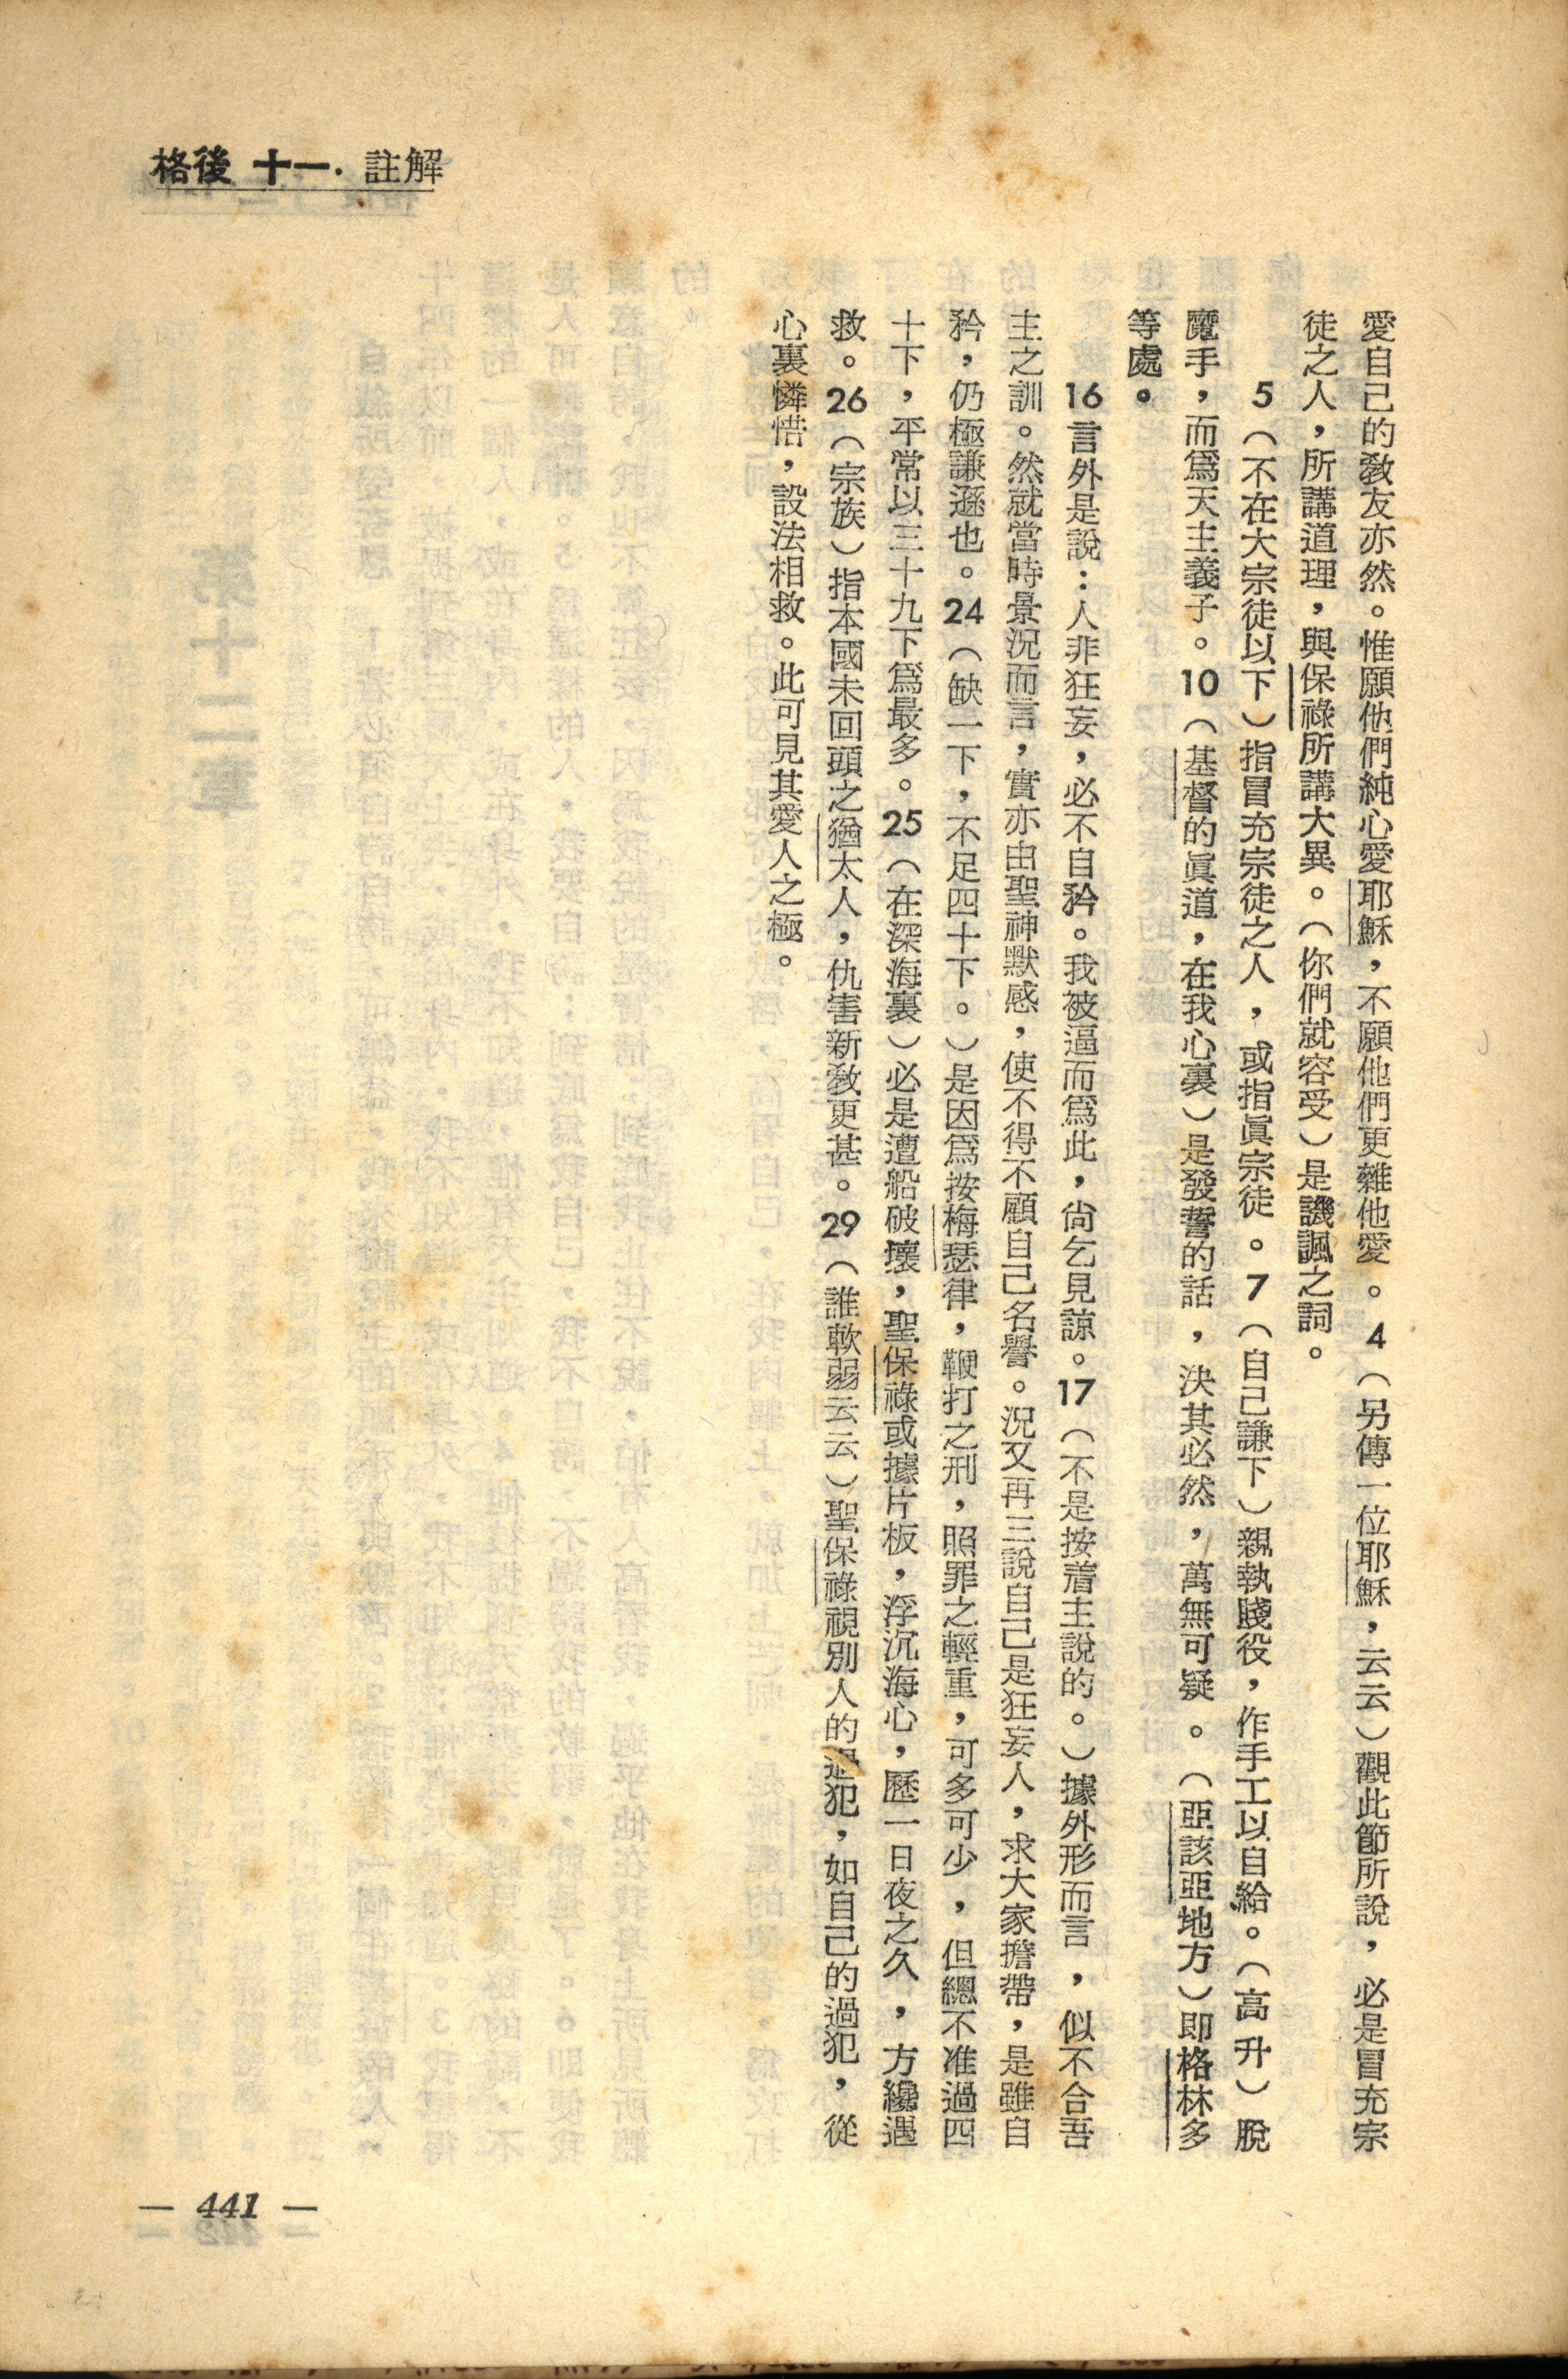 格後 十一·註解
愛自己的敎友亦然。惟願他們純心愛耶穌，不願他們更雜他愛。4（另傳一位耶穌，云云）觀此節所說，必是冒充宗
徒之人，所講道理，與保祿所講大異。（你們就容受）是譏諷之詞。
5（不在大宗徒以下）指冒充宗徒之人，或指眞宗徒。7（自己謙下）親執賤役，作手工以自給。（高升）脫
魔手，而爲天主義子。10（基督的眞道，在我心裏）是發誓的話，決其必然，萬無可疑。（亞該亞地方）即格林多
等處。
16言外是說：人非狂妄，必不自矜。我被逼而爲此，尙乞見諒。17（不是按着主說的。）據外形而言，似不合吾
主之訓。然就當時景況而言，實亦由聖神默感，使不得不顧自己名譽。況又再三說自己是狂妄人，求大家擔帶，是雖自
矜，仍極謙遜也。24（缺一下，不足四十下。）是因爲按梅瑟律，鞭打之刑，照罪之輕重，可多可少，但總不准過四
十下，平常以三十九下爲最多。25（在深海裏）必是遭船破壞，聖保祿或據片板，浮沉海心，歷一日夜之久，方纔遇
救。26（宗族）指本國未回頭之猶太人，仇害新敎更甚。29（誰軟弱云云）聖保祿視別人的過犯，如自己的過犯，從
心裏憐惜，設法相救。此可見其愛人之極。
— 441 —